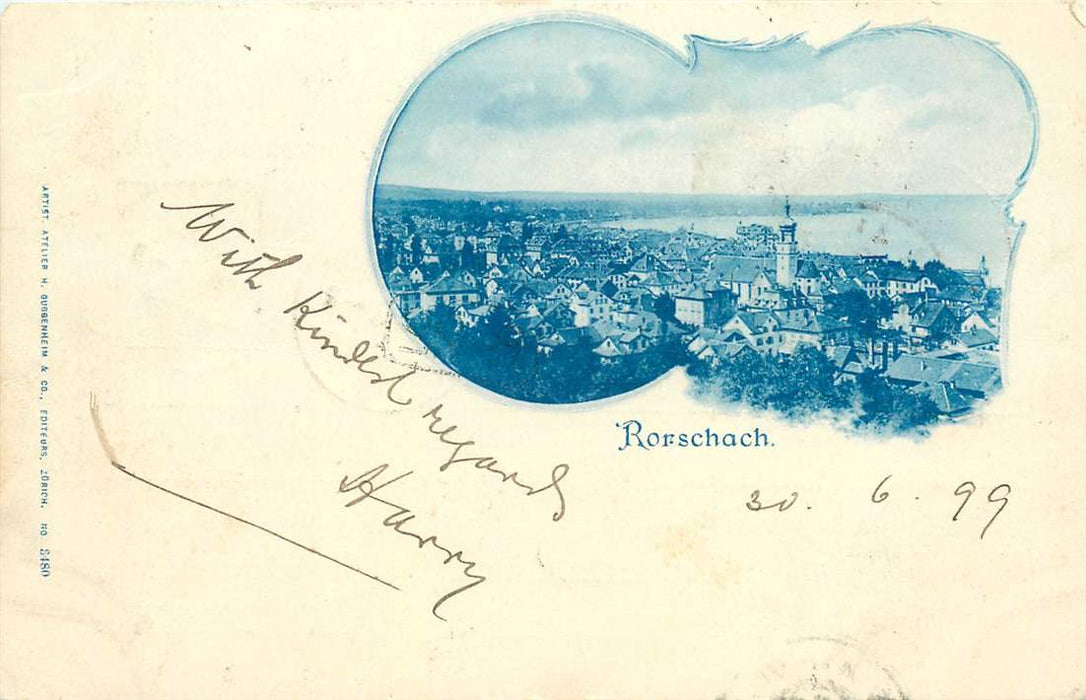 Rorschach.
With Kindest regards
Harry
30. 6. 99
ARTIST. ATELIER H. GUGGENHEIM & CO., EDITEURS, ZÜRICH. NO. 3480